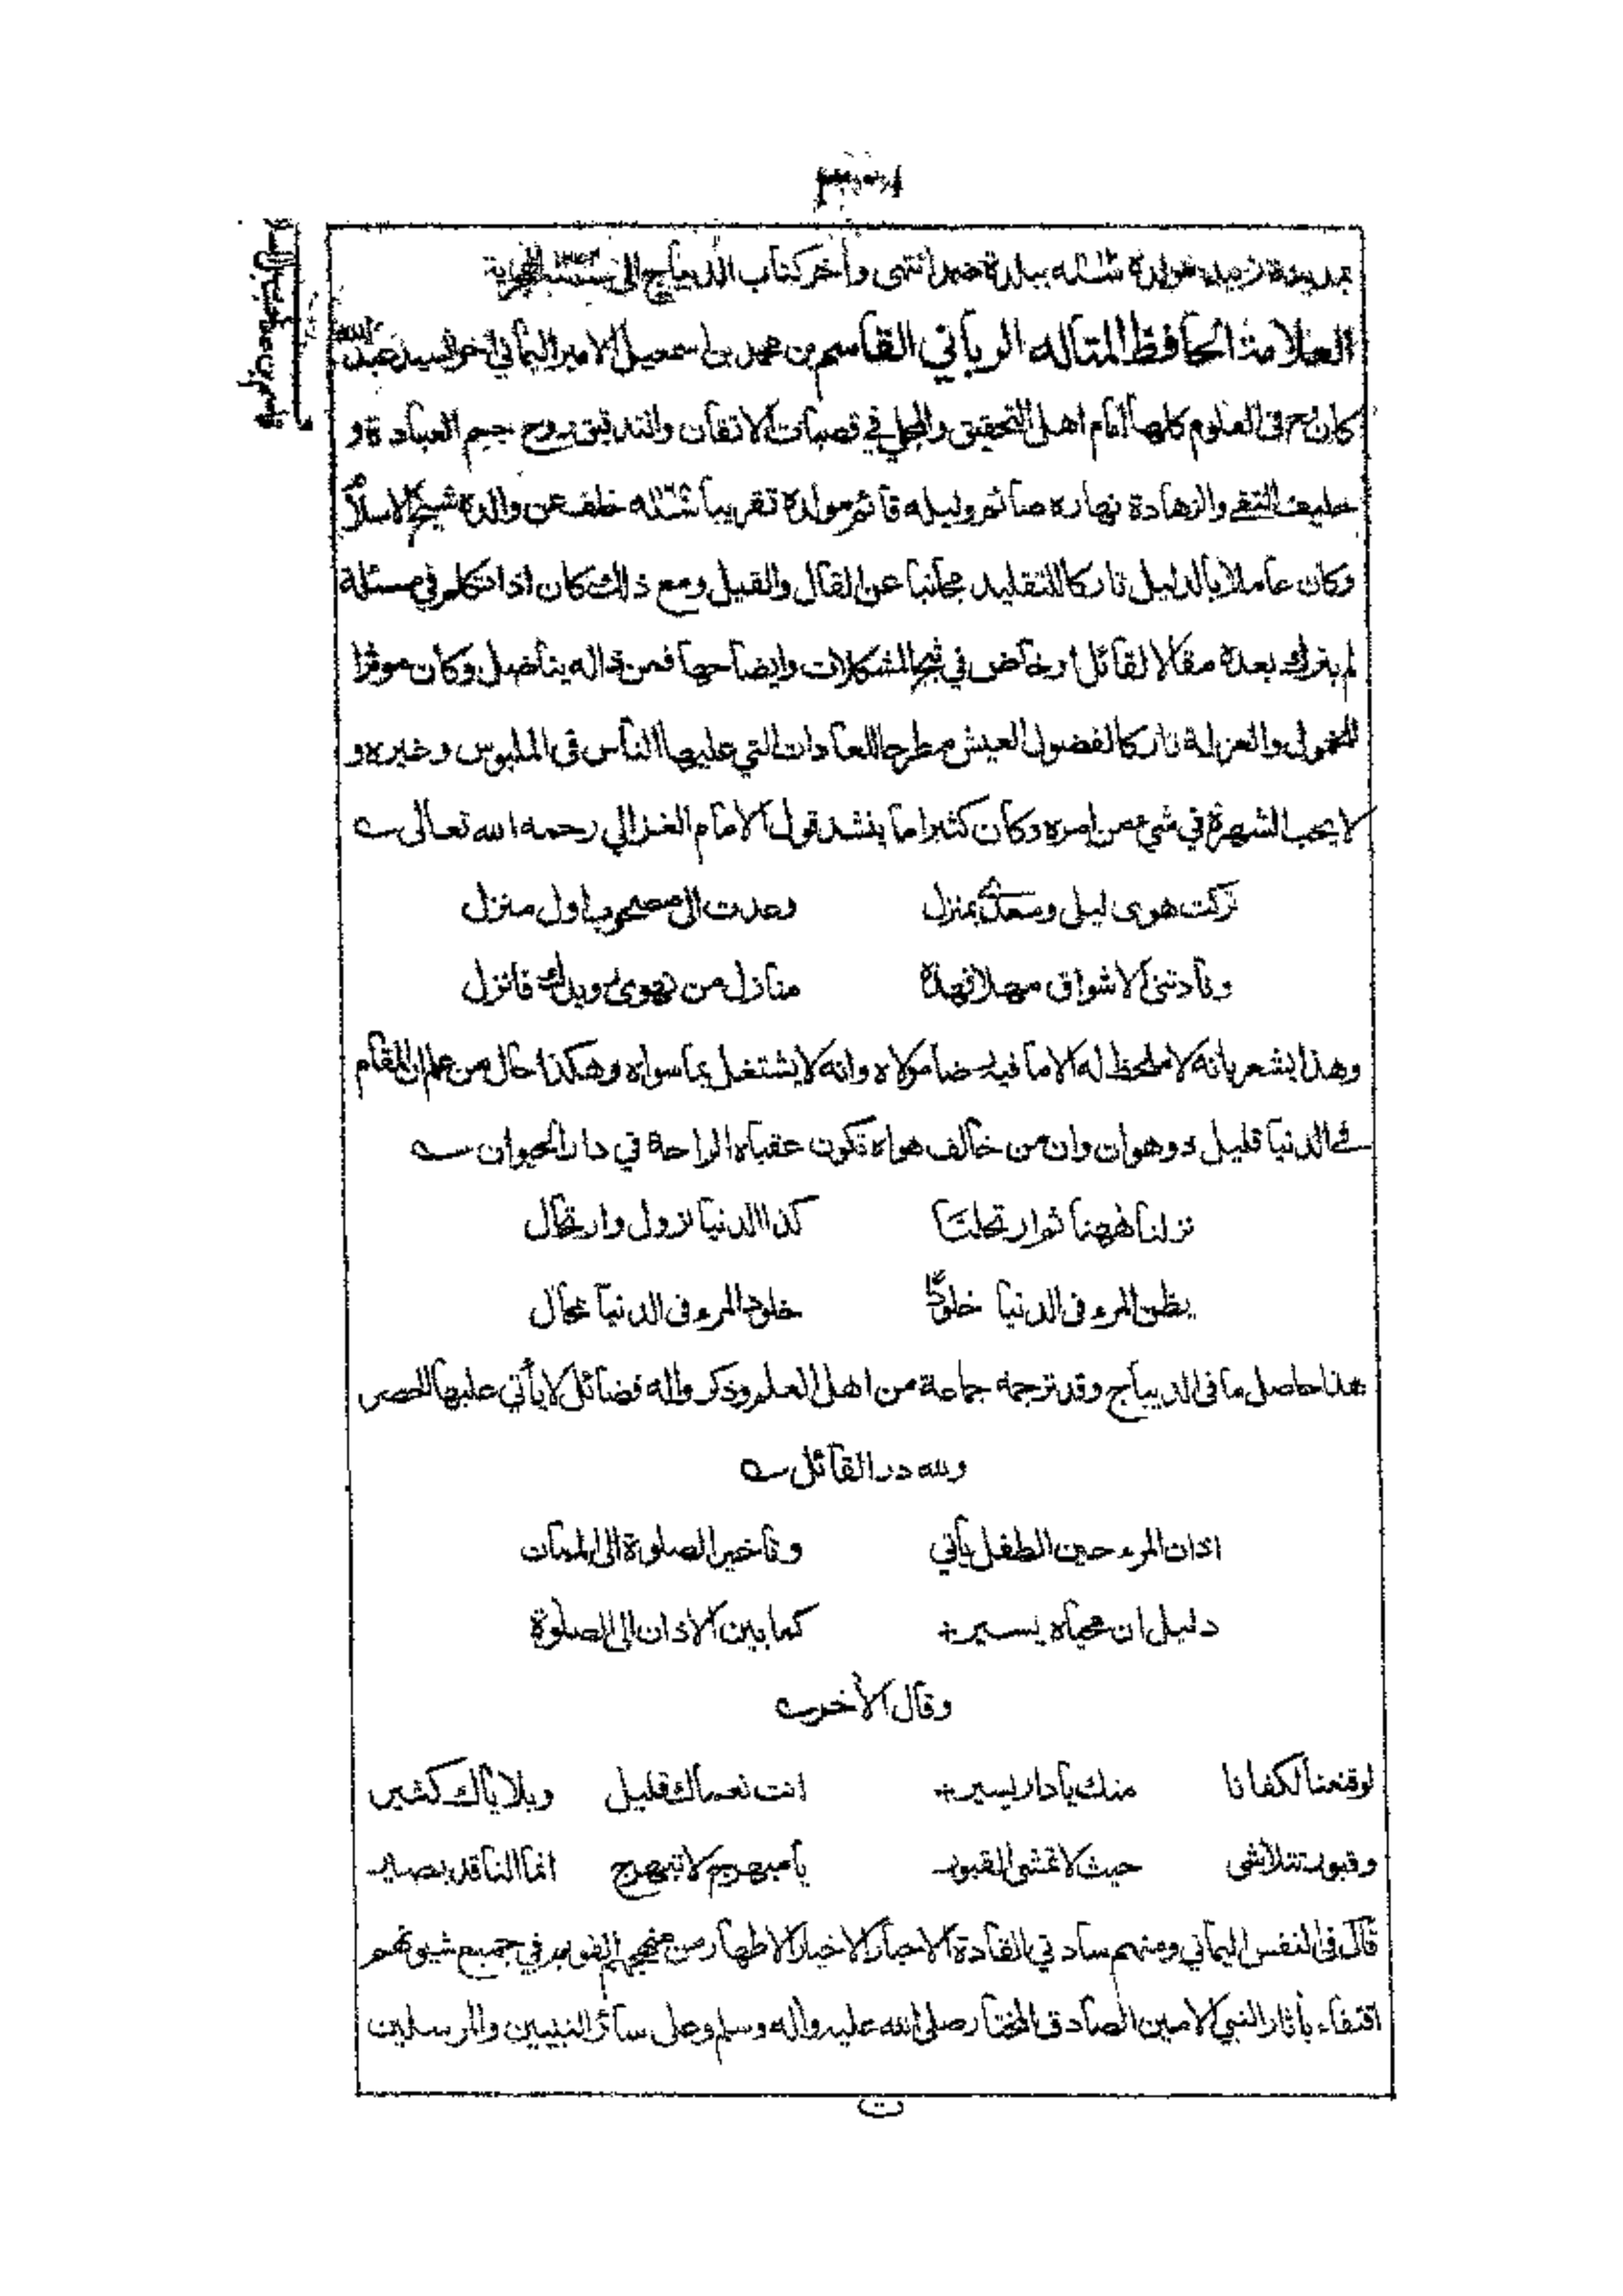 بمدينة زبيد مولده سنة ببلدة ضمد انتهى وأخر كتاب الديباج الى سنة الهجرية
العلامة الحافظ المتاله الرباني القاسم بن محمد بن اسمعيل الامير اليماني اخو السيد عبد الله
كان رح في العلوم كلها أمام اهل التحقيق والمجلي في قصبات الاتقان والتدقيق روح جسم العبادة و
حليف التقى والزهادة نهاره صائم وليله قائم مولده تقريبا خلف عن والده شيخ الاسلام
وكان عاملا بالدليل تاركا للتقليد مجانبا عن القال والقيل ومع ذلك كان اذا تكلم في مسئلة
لم يترك بعده مقالا لقائل اوخاض في المشكلات وايضاحها فمن ذا له يناضل وكان موثرا
للخمول والعزلة تاركا لفضول العيش مطرحا للعادات التي عليها الناس في الملبوس وغيره و
لا يحب الشهرة في شيء من امره وكان كثيرا ما ينشد قول الامام الغزالي رحمه الله تعالى
تركت هوى ليلى وسعدى بمنزل وعدت الى مصحوب اول منزل
ونادتني الاشواق مهلا فهذه منازل من تهوى رويدك فانزل
وهذا يشعر بانه لا ملحظ له الا ما فيه رضا مولاه وانه لا يشتغل بما سواه وهكذا حال من علم ان المقام
في الدنيا قليل ذو هوان وان من خالف هواه تكون عقباه الراحة في دار الحيوان
نزلنا ههنا ثم ارتحلنا كذا الدنيا نزول وارتحال
يظن المرء في الدنيا خلودًا خلود المرء في الدنيا محال
هذا حاصل ما في الديباج وقد ترجمه جماعة من اهل العلم وذكروا له فضائل لا يأتي عليها الحصر
ولله در القائل
اذان المرء حين الطفل يأتي وتأخير الصلوة الى الممات
دليل ان محياه يسير كما بين الاذان الى الصلوة
وقال الأخر
لو قنعنا لكفانا منك يا دار يسير انت نعماك قليل وبلاياك كثير
وقبور تتلاشى حيث لا تمشي القبور يا مبهرج لا تبهرج انما الناقد بصير
قال في النفس اليماني ومنهم سادتي القادة الاحبار الاخيار الاطهار من منهجهم القويم في جميع شيونهم
اقتفاء بأثار النبي الامين الصادق المختار صلى الله عليه وأله وسلم وعلى سائر النبيين والمرسلين
ت